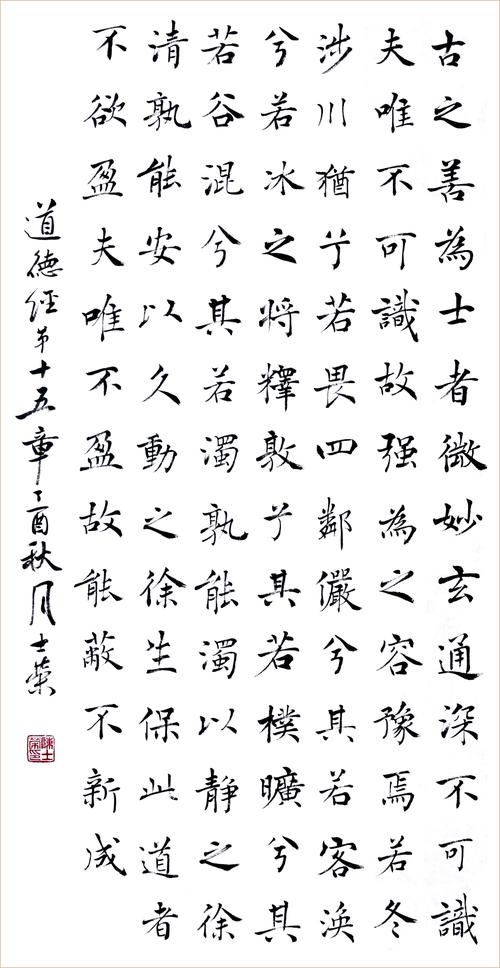 古之善為士者微妙玄通深不可識
夫唯不可識故强為之容豫焉若冬
涉川猶兮若畏四鄰儼兮其若客渙
兮若冰之將釋敦兮其若樸曠兮其
若谷混兮其若濁孰能濁以静之徐
清孰能安以久動之徐生保此道者
不欲盈夫唯不盈故能蔽不新成
道德經第十五章丁酉秋月士榮
陳士榮印